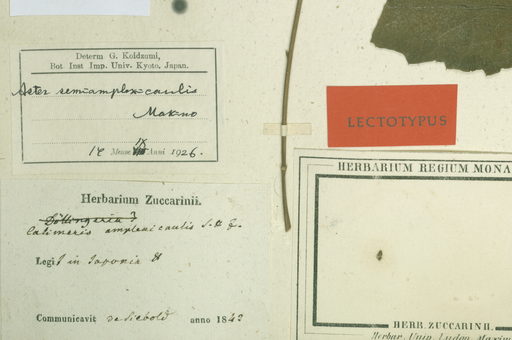 Determ G. Koidzumi,
Bot Inst Imp. Univ. Kyoto, Japan.
Aster semi-amplexi-caulis
Makino
Mense IX Anni 1926.
LECTOTYPUS
HERBARIUM REGIUM MONA
Herbarium Zuccarinii.
Döllingeria ?
Calimeris amplexicaulis S. et Z.
Legit in Japonia
Communicavit de Siebold anno 1843
HERB. ZUCCARINII.
Herbar. Univ. Ludov. Maxim